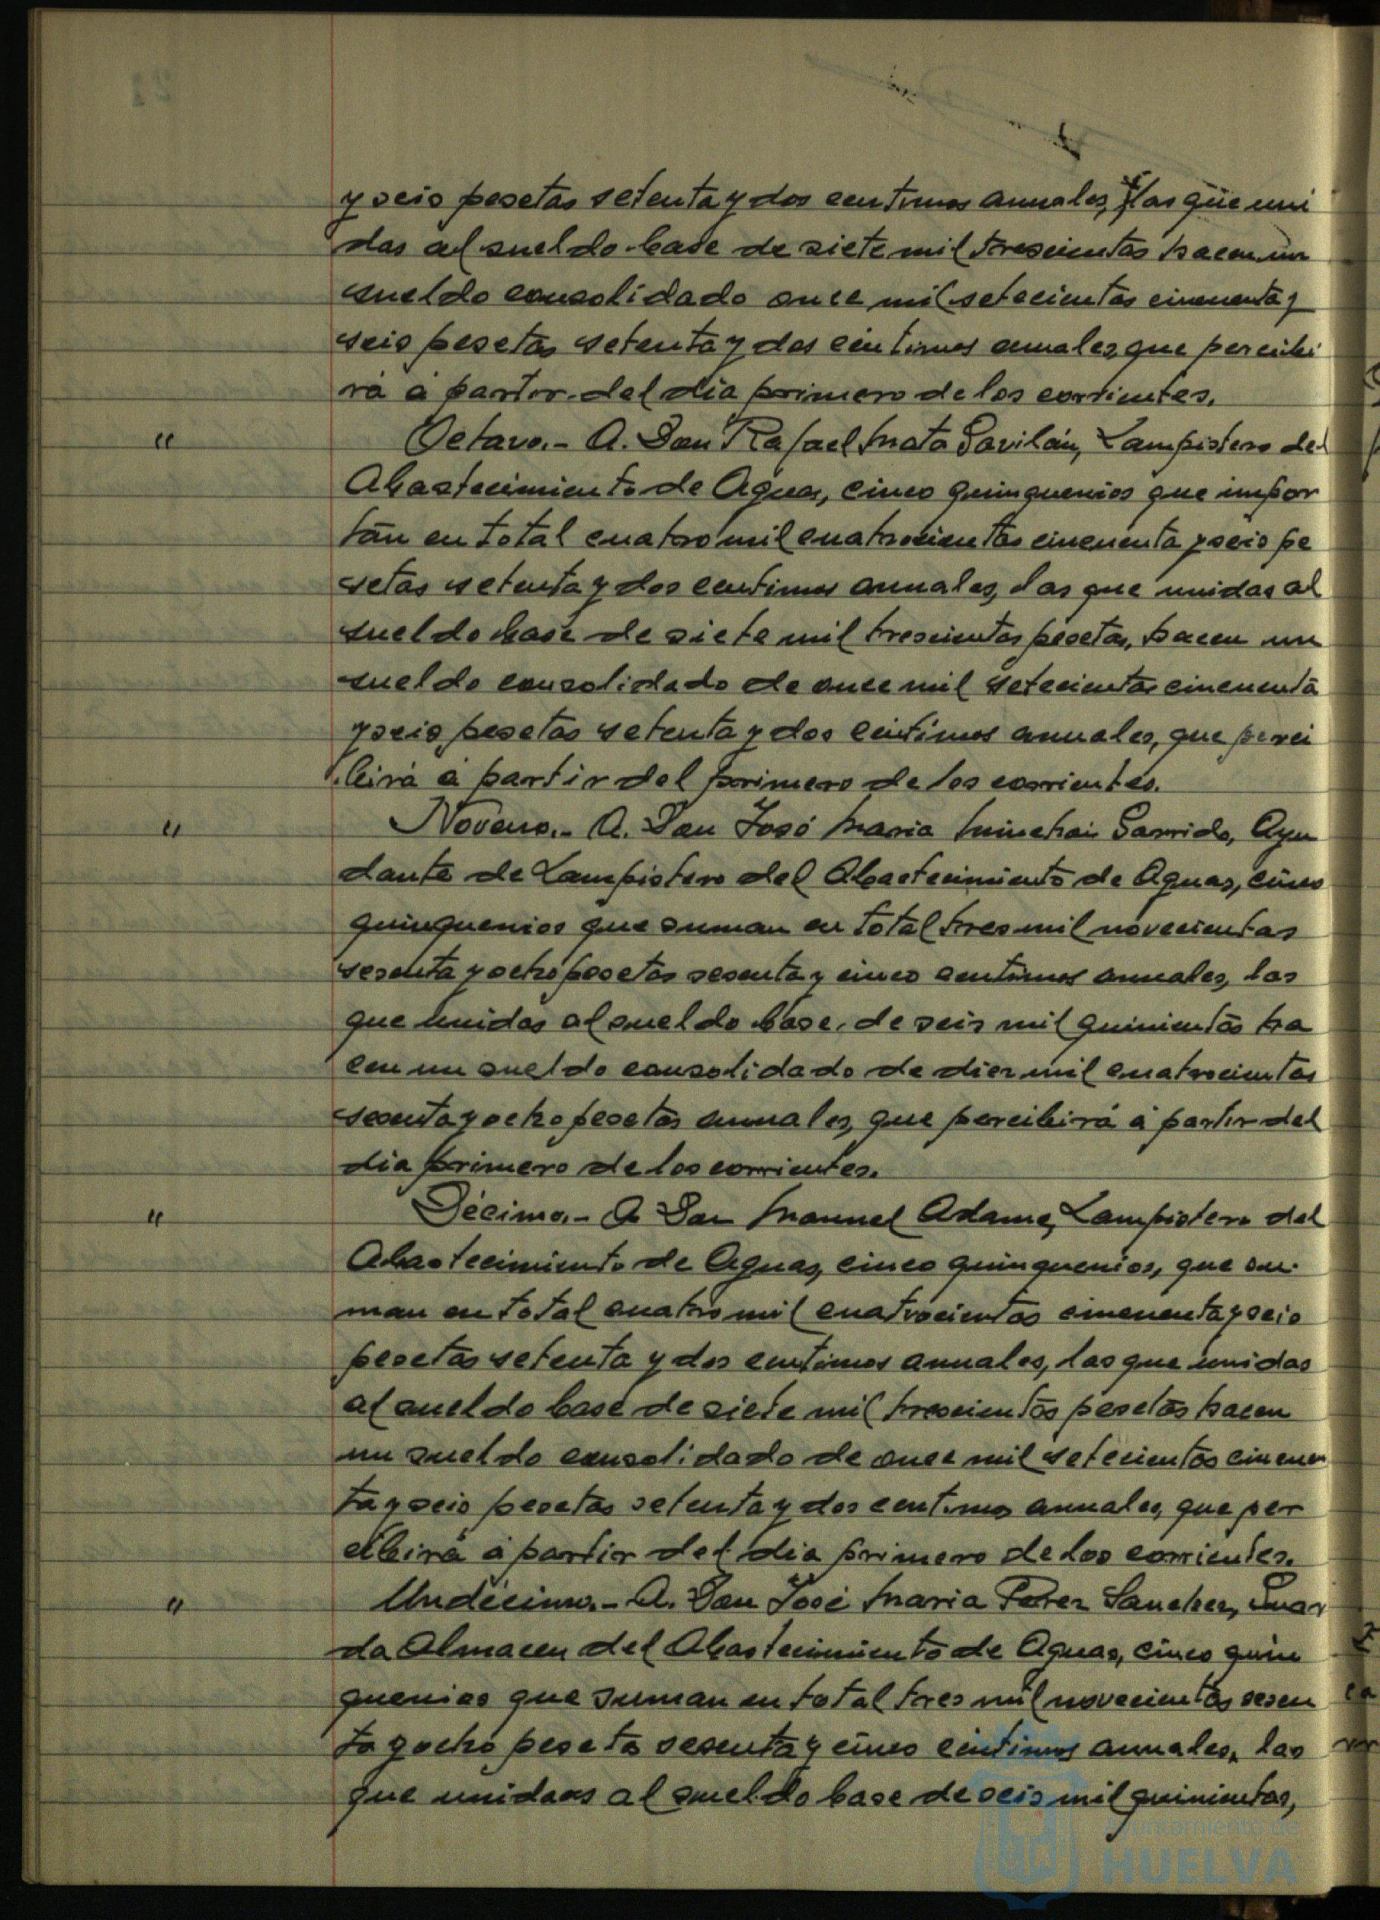 y seis pesetas setenta y dos centimos anuales, las que uni
das al sueldo base de siete mil trescientas hacen un
sueldo consolidado once mil setecientas cincuenta y
seis pesetas setenta y dos centimos anuales, que percibi
rá á partir del dia primero de los corrientes.
" Octavo.- A. Don Rafael Mata Gavilán, Lampistero del
Abastecimiento de Aguas, cinco quinquenios que impor
tan en total cuatro mil cuatrocientas cincuenta y seis pe
setas setenta y dos centimos anuales, las que unidas al
sueldo base de siete mil trescientas pesetas, hacen un
sueldo consolidado de once mil setecientas cincuenta
y seis pesetas setenta y dos centimos anuales, que perci
birá á partir del primero de los corrientes.
" Noveno.- A. Don José Maria Garrido, Ayu
dante de Lampistero del Abastecimiento de Aguas, cinco
quinquenios que suman en total tres mil novecientas
sesenta y ocho pesetas sesenta y cinco centimos anuales, las
que unidas al sueldo base, de seis mil quinientas ha
cen un sueldo consolidado de diez mil cuatrocientas
sesenta y ocho pesetas anuales, que percibirá á partir del
dia primero de los corrientes.
" Décimo.- A Don Manuel Adame, Lampistero del
Abastecimiento de Aguas, cinco quinquenios, que su-
man en total cuatro mil cuatrocientas cincuenta y seis
pesetas setenta y dos centimos anuales, las que unidas
al sueldo base de siete mil trescientas pesetas hacen
un sueldo consolidado de once mil setecientas cincuen
ta y seis pesetas setenta y dos centimos anuales, que per
cibirá á partir del dia primero de los corrientes.
" Undécimo.- A. Don José Maria Perez Sanchez, Guar
da Almacen del Abastecimiento de Aguas, cinco quin
quenios que suman en total tres mil novecientas sesen
ta y ocho pesetas sesenta y cinco centimos anuales, las
que unidas al sueldo base de seis mil quinientas,
Ayuntamiento de
HUELVA